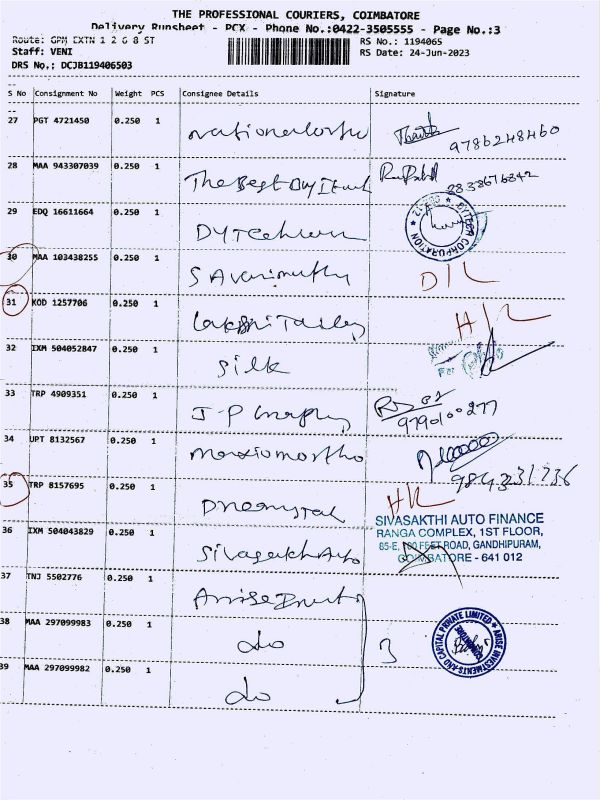 THE PROFESSIONAL COURIERS, COIMBATORE
Delivery Runsheet - PCX - Phone No.:0422-3505555 - Page No.:3
Route: GPM EXTN 1 2 G 8 ST
RS No.: 1194065
Staff: VENI
RS Date: 24-Jun-2023
DRS No.: DCJB119406503
S No Consignment No Weight PCS Consignee Details Signature
27 PGT 4721450 0.250 1
9786248460
28 MAA 943307039 0.250 1
The Best Buy
29 EDQ 16611664 0.250 1
DYTECH CORPORATION
30 MAA 103438255 0.250 1
Savarimuthu D/L
31 KOD 1257706 0.250 1
H/L
32 IXM 504052847 0.250 1
Silk
For
33 TRP 4909351 0.250 1
J-P
9790100277
34 UPT 8132567 0.250 1
35 TRP 8157695 0.250 1
H/L
SIVASAKTHI AUTO FINANCE
RANGA COMPLEX, 1ST FLOOR,
65-E, 100 FEET ROAD, GANDHIPURAM,
COIMBATORE - 641 012
36 IXM 504043829 0.250 1
Sivasakthi Auto
37 TNJ 5502776 0.250 1
38 MAA 297099983 0.250 1
do 3
ARISE INVESTMENTS AND CAPITAL PRIVATE LIMITED
39 MAA 297099982 0.250 1
do